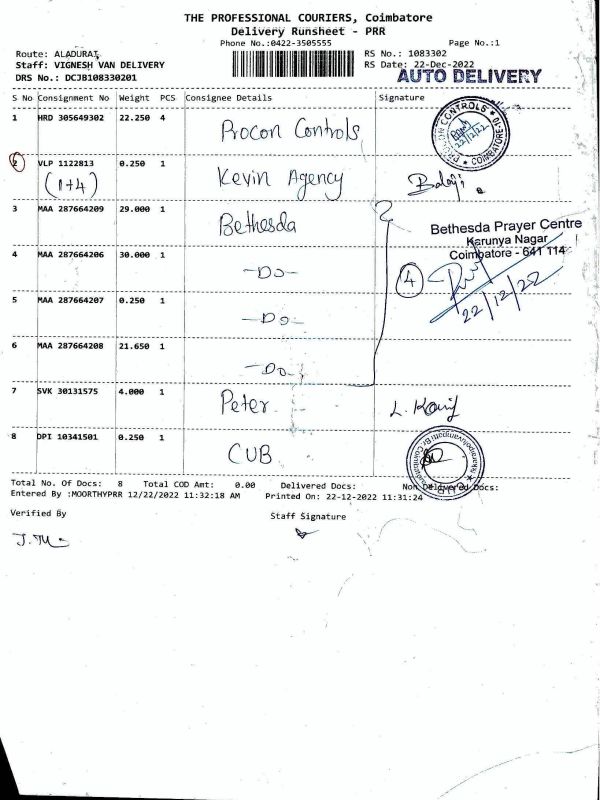 THE PROFESSIONAL COURIERS, Coimbatore
Delivery Runsheet - PRR
Phone No.:0422-3505555
Page No.:1
Route: ALADURAI
RS No.: 1083302
Staff: VIGNESH VAN DELIVERY
RS Date: 22-Dec-2022
DRS No.: DCJB108330201
AUTO DELIVERY
S No Consignment No Weight PCS Consignee Details Signature
1 HRD 305649302 22.250 4 Procon Controls
PROCON CONTROLS COIMBATORE-10
22/12/22
2 VLP 1122813 0.250 1 Kevin Agency Balaji
(1+4)
3 MAA 287664209 29.000 1 Bethesda
Bethesda Prayer Centre
Karunya Nagar
Coimbatore - 641 114
4 MAA 287664206 30.000 1 -Do- 4
22/12/22
5 MAA 287664207 0.250 1 -Do-
6 MAA 287664208 21.650 1 -Do-
7 SVK 30131575 4.000 1 Peter
8 DPI 10341501 0.250 1 CUB
Total No. Of Docs: 8 Total COD Amt: 0.00 Delivered Docs: Non Delivered Docs:
Entered By :MOORTHYPRR 12/22/2022 11:32:18 AM Printed On: 22-12-2022 11:31:24
Verified By
Staff Signature